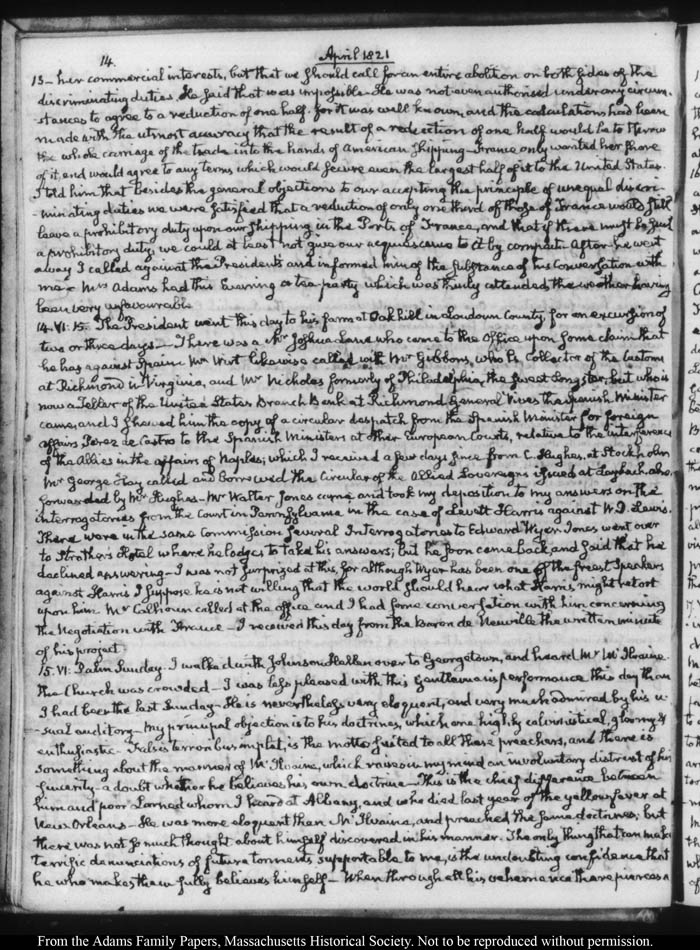 14.
April 1821
13— her commercial interests, but that we should call for an entire abolition on both sides of the
discriminating duties. He said that was impossible. He was not even authorised under any circum-
stances to agree to a reduction of one half. for it was well known, and the calculations had been
made with the utmost accuracy that the result of a reduction of one half would be to throw
the whole carriage of the trade into the hands of American shipping— France only wanted her share
of it, and would agree to any terms which would secure even the largest half of it to the United States.
I told him that besides the general objections to our accepting the principle of unequal discri-
-minating duties we were satisfied that a reduction of only one third of those of France would still
leave a prohibitory duty upon our shipping in the Ports of France, and that if there must be such
a prohibitory duty, we could at least not give our acquiescence to it by compact. After he went
away I called again at the President's and informed him of the substance of his conversation with
me— Mrs Adams had this Evening a tea party which was thinly attended, the weather having
been very unfavourable.
14. VI: 15. The President went this day to his farm at Oak hill in Loudoun County, for an excursion of
two or three days.— There was a Mr Joshua Lane who came to the Office upon some claim that
he has against Spain. Mr Wirt likewise called with Mr Gibbon, who is Collector of the Customs
at Richmond in Virginia, and Mr Nicholas formerly of Philadelphia, the sweet songster, but who is
now a Teller of the United States Branch Bank at Richmond. General Vives the Spanish Minister
came, and I shewed him the copy of a circular despatch from the Spanish Minister for foreign
affairs Perez de Castro to the Spanish Ministers at other European Courts, relative to the interference
of the Allies in the affairs of Naples; which I received a few days since from C. Hughes, at Stockholm
Mr George Hay called and borrowed the Circular of the Allied Sovereigns issued at Laybach, also
forwarded by Mr Hughes— Mr Walter Jones came and took my deposition to my answers on the
interrogatories from the Court in Pennsylvania in the case of Levett Harris against W. D. Lewis.
There were in the same Commission several Interrogatories to Edward Wyer. Jones went over
to Strother's Hotel where he lodges to take his answers; but he soon came back and said that he
declined answering— I was not surprized at this, for although Wyer has been one of the freest speakers
against Harris I suppose he is not willing that the world should hear what Harris might retort
upon him. Mr Calhoun called at the office and I had some conversation with him concerning
the Negotiation with France— I received this day from the Baron de Neuville the written minute
of his project
15. VI: Palm Sunday. I walked with Johnson Hellen over to Georgetown, and heard Mr McIlvaine.
The Church was crowded— I was less pleased with this Gentleman's performance this day than
I had been the last Sunday— He is nevertheless very eloquent, and very much admired by his u-
-sual auditory— My principal objection is to his doctrines, which are highly calvinistical, gloomy &
enthusiastic— Falsis terroribus implet, is the motto suited to all these preachers, and there is
something about the manner of McIlvaine, which raises in my mind an involuntary distrust of his
sincerity— a doubt whether he believes his own doctrine— This is the chief difference between
him and poor Larned whom I heard at Albany, and who died last year of the yellow fever at
New Orleans— He was more eloquent than McIlvaine, and preached the same doctrines; but
there was not so much thought about himself discovered in his manner. The only thing that can make
terrific denunciations of future torments supportable to me, is the undoubting confidence that
he who makes them fully believes himself— When through all his vehemence there pierces a
From the Adams Family Papers, Massachusetts Historical Society. Not to be reproduced without permission.